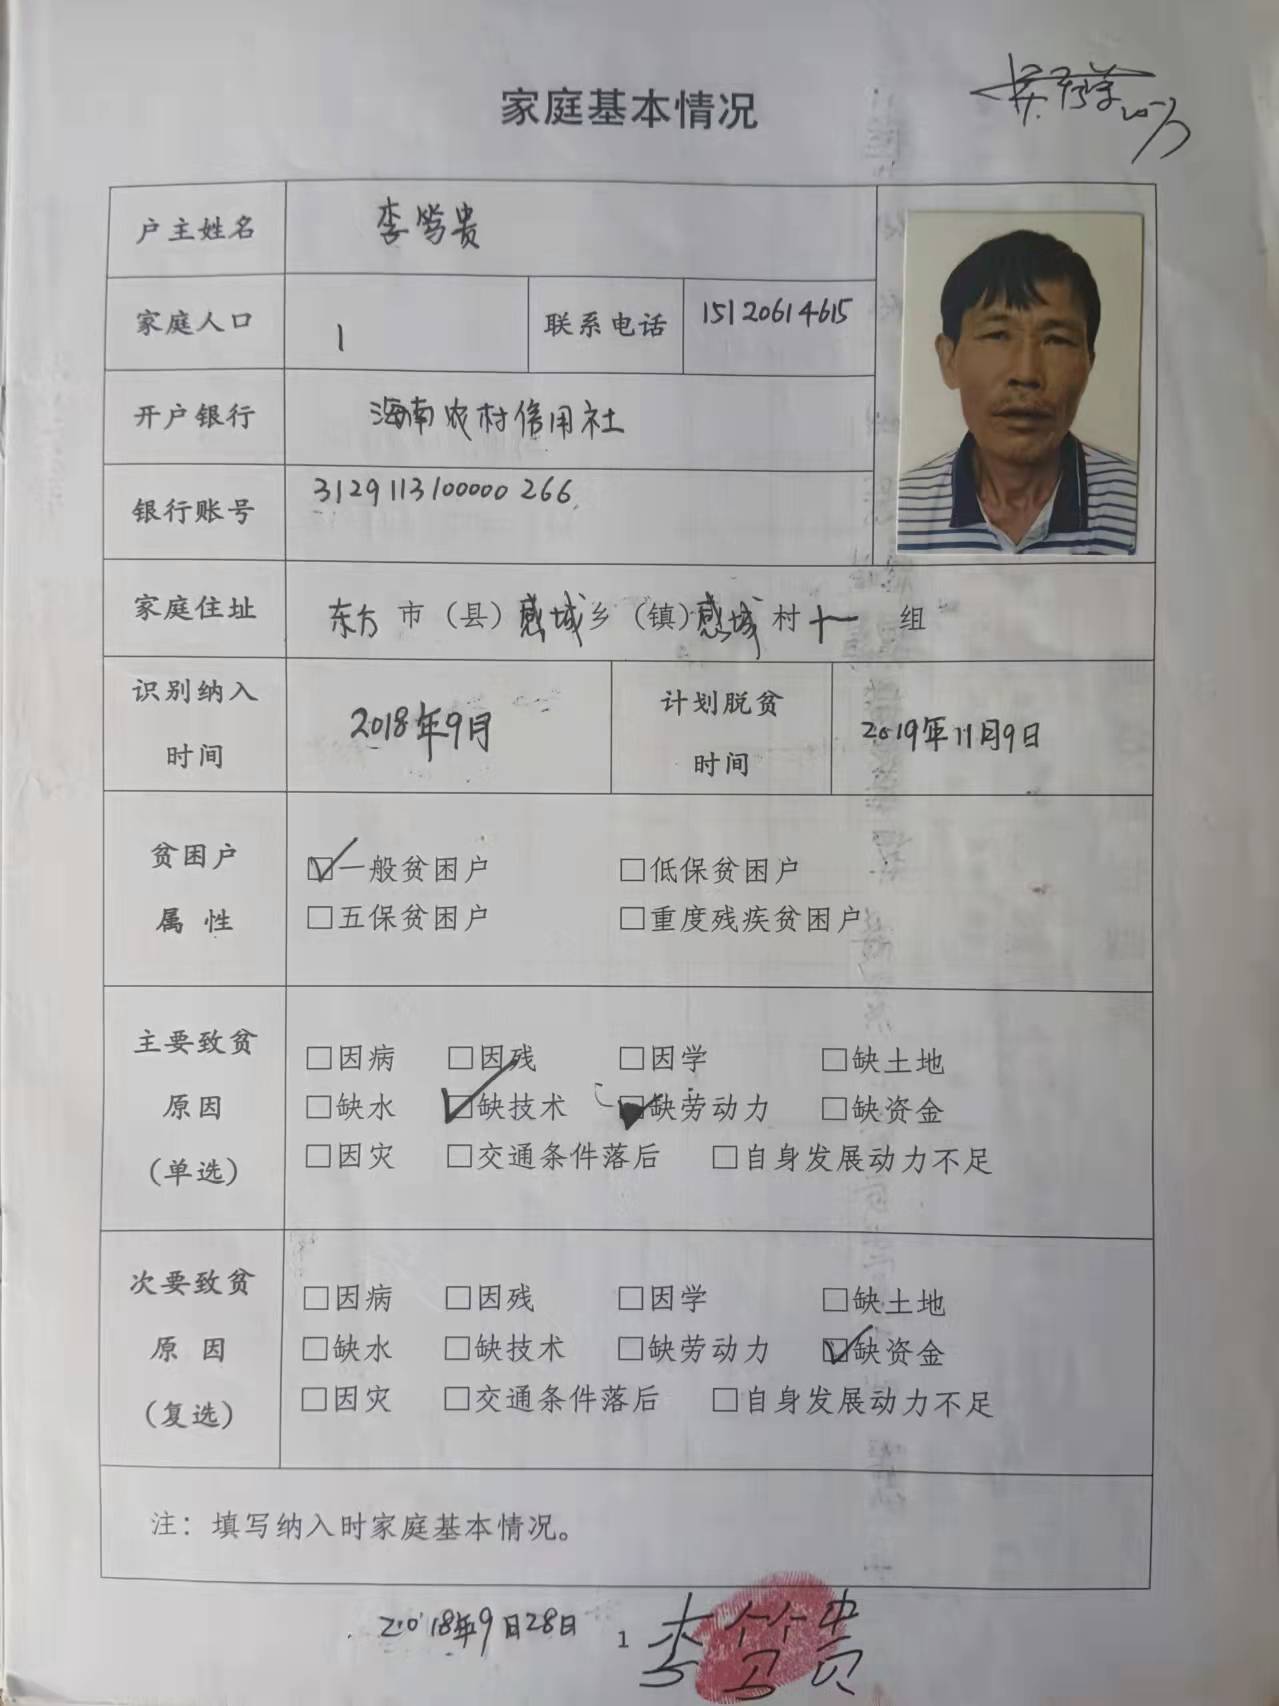 家庭基本情况
户主姓名 李笃贵
家庭人口 1 联系电话 15120614615
开户银行 海南农村信用社
银行账号 3129113100000266
家庭住址 东方市（县）感城乡（镇）感城村十一组
识别纳入时间 2018年9月 计划脱贫时间 2019年11月9日
贫困户属性
☑一般贫困户 □低保贫困户
□五保贫困户 □重度残疾贫困户
主要致贫原因（单选）
□因病 □因残 □因学 □缺土地
□缺水 ☑缺技术 缺劳动力 □缺资金
□因灾 □交通条件落后 □自身发展动力不足
次要致贫原因（复选）
□因病 □因残 □因学 □缺土地
□缺水 □缺技术 □缺劳动力 ☑缺资金
□因灾 □交通条件落后 □自身发展动力不足
注：填写纳入时家庭基本情况。
2018年9月28日 1 李笃贵